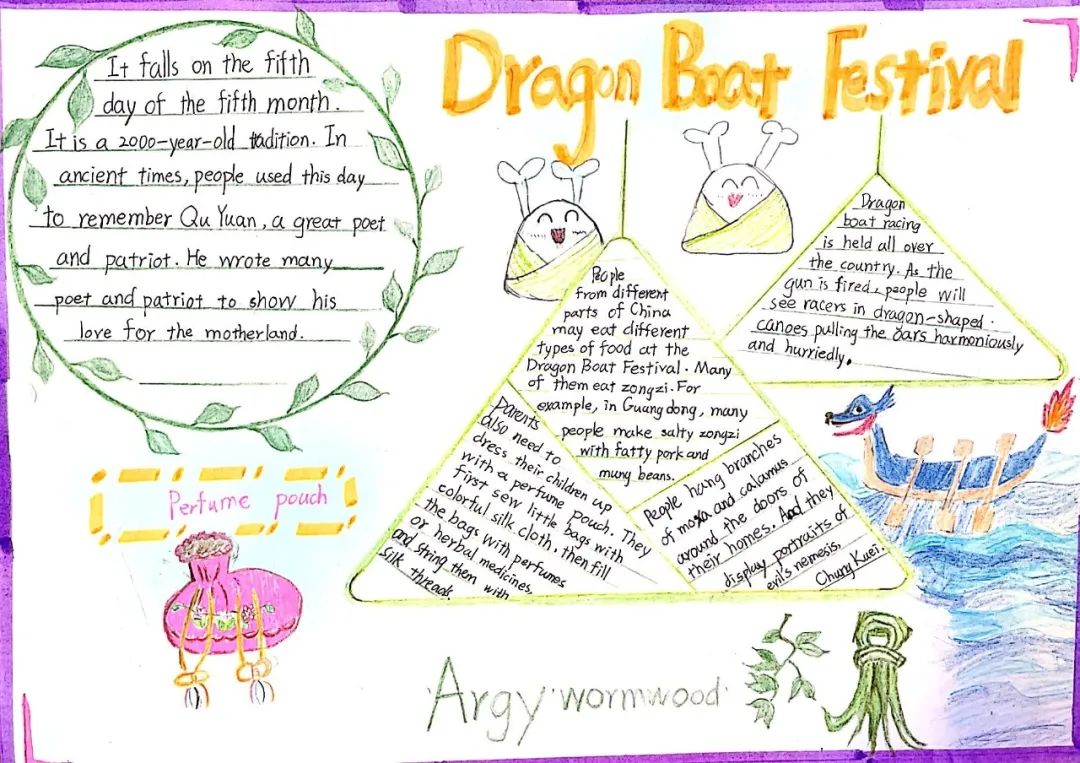 Dragon Boat Festival
It falls on the fifth
day of the fifth month.
It is a 2000-year-old tradition. In
ancient times, people used this day
to remember Qu Yuan, a great poet
and patriot. He wrote many
poet and patriot to show his
love for the motherland.
People
from different
parts of China
may eat different
types of food at the
Dragon Boat Festival. Many
of them eat zongzi. For
example, in Guangdong, many
people make salty zongzi
with fatty pork and
mung beans.
Dragon
boat racing
is held all over
the country. As the
gun is fired, people will
see racers in dragon-shaped
canoes pulling the oars harmoniously
and hurriedly.
parents
also need to
dress their children up
with a perfume pouch. They
first sew little bags with
colorful silk cloth, then fill
the bags with perfumes
or herbal medicines,
and string them with
silk threads.
People hang branches
of moxa and calamus
around the doors of
their homes. And they
display portraits of
evil's nemesis,
Chung Kuei.
Perfume pouch
Argy wormwood